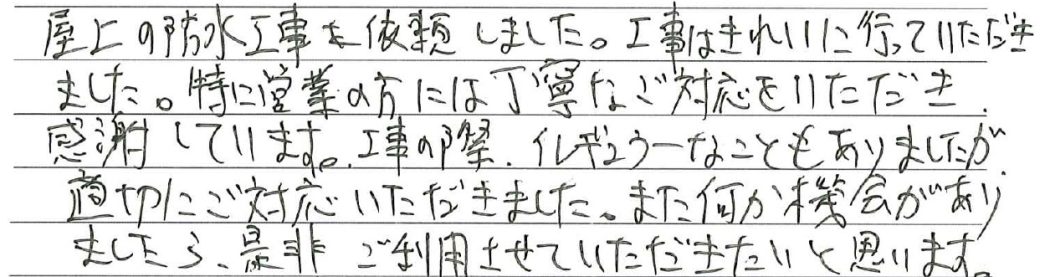 屋上の防水工事を依頼しました。工事はきれいに行っていただき
ました。特に営業の方には丁寧なご対応をいただき、
感謝しています。工事の際、イレギュラーなこともありましたが
適切にご対応いただきました。また何か機会があり
ましたら、是非ご利用させていただきたいと思います。